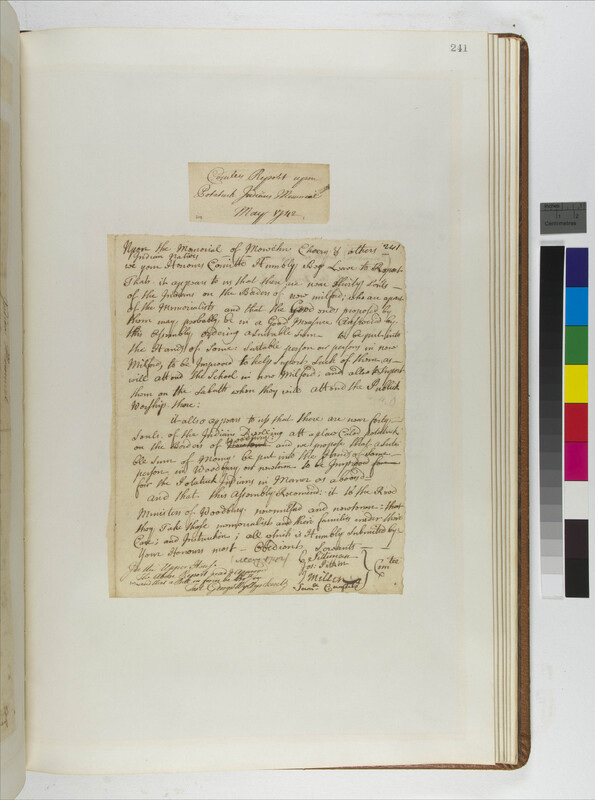 241
Comtees Report upon
Potatuck Indians Memorial
May 1742
241
Upon the Memorial of Mowehu Cheery & others
Indian Natives
we your Honours Comitte Humbly Beg Leave to Report
That it appears to us that there are near thirty Souls
of the Indians on the Borders of new milford, who are apart
of the Memorialists and that the Good ends proposed by
them may probably be in a Good Measure Answered by
this Assembly ordering a suitable Sum to be put into
the Hands of Some Suitable person or persons in new
Milford, to be Improved to help Support, Such of them, as
will attend the School in new Milford; and also to Support
them on the Sabath when they will attend the Publick
Worship there:
it also appears to us that there are near forty
Souls of the Indians Dwelling att a place Caled potatuck
on the Borders of Woodbury and we propose that a Suta
ble Sum of Money be put into the Hands of some
person in Woodbury or newtown to be Improved
for the Potatuck Indians in Maner as aboved
and that this Assembly Recomend it to the Revd
Ministers of Woodbury newmilford and newtown: that
they Take those memorialists and their families under their
Care; and Instruction; all which is Humbly Submited by
Your Honours most Obedient Servants
In the Upper House
The above Report read &
and that a Bill in form be
Test George Wyllys Secrety
Silliman
Jos: Pitkin
Miller
Comtee